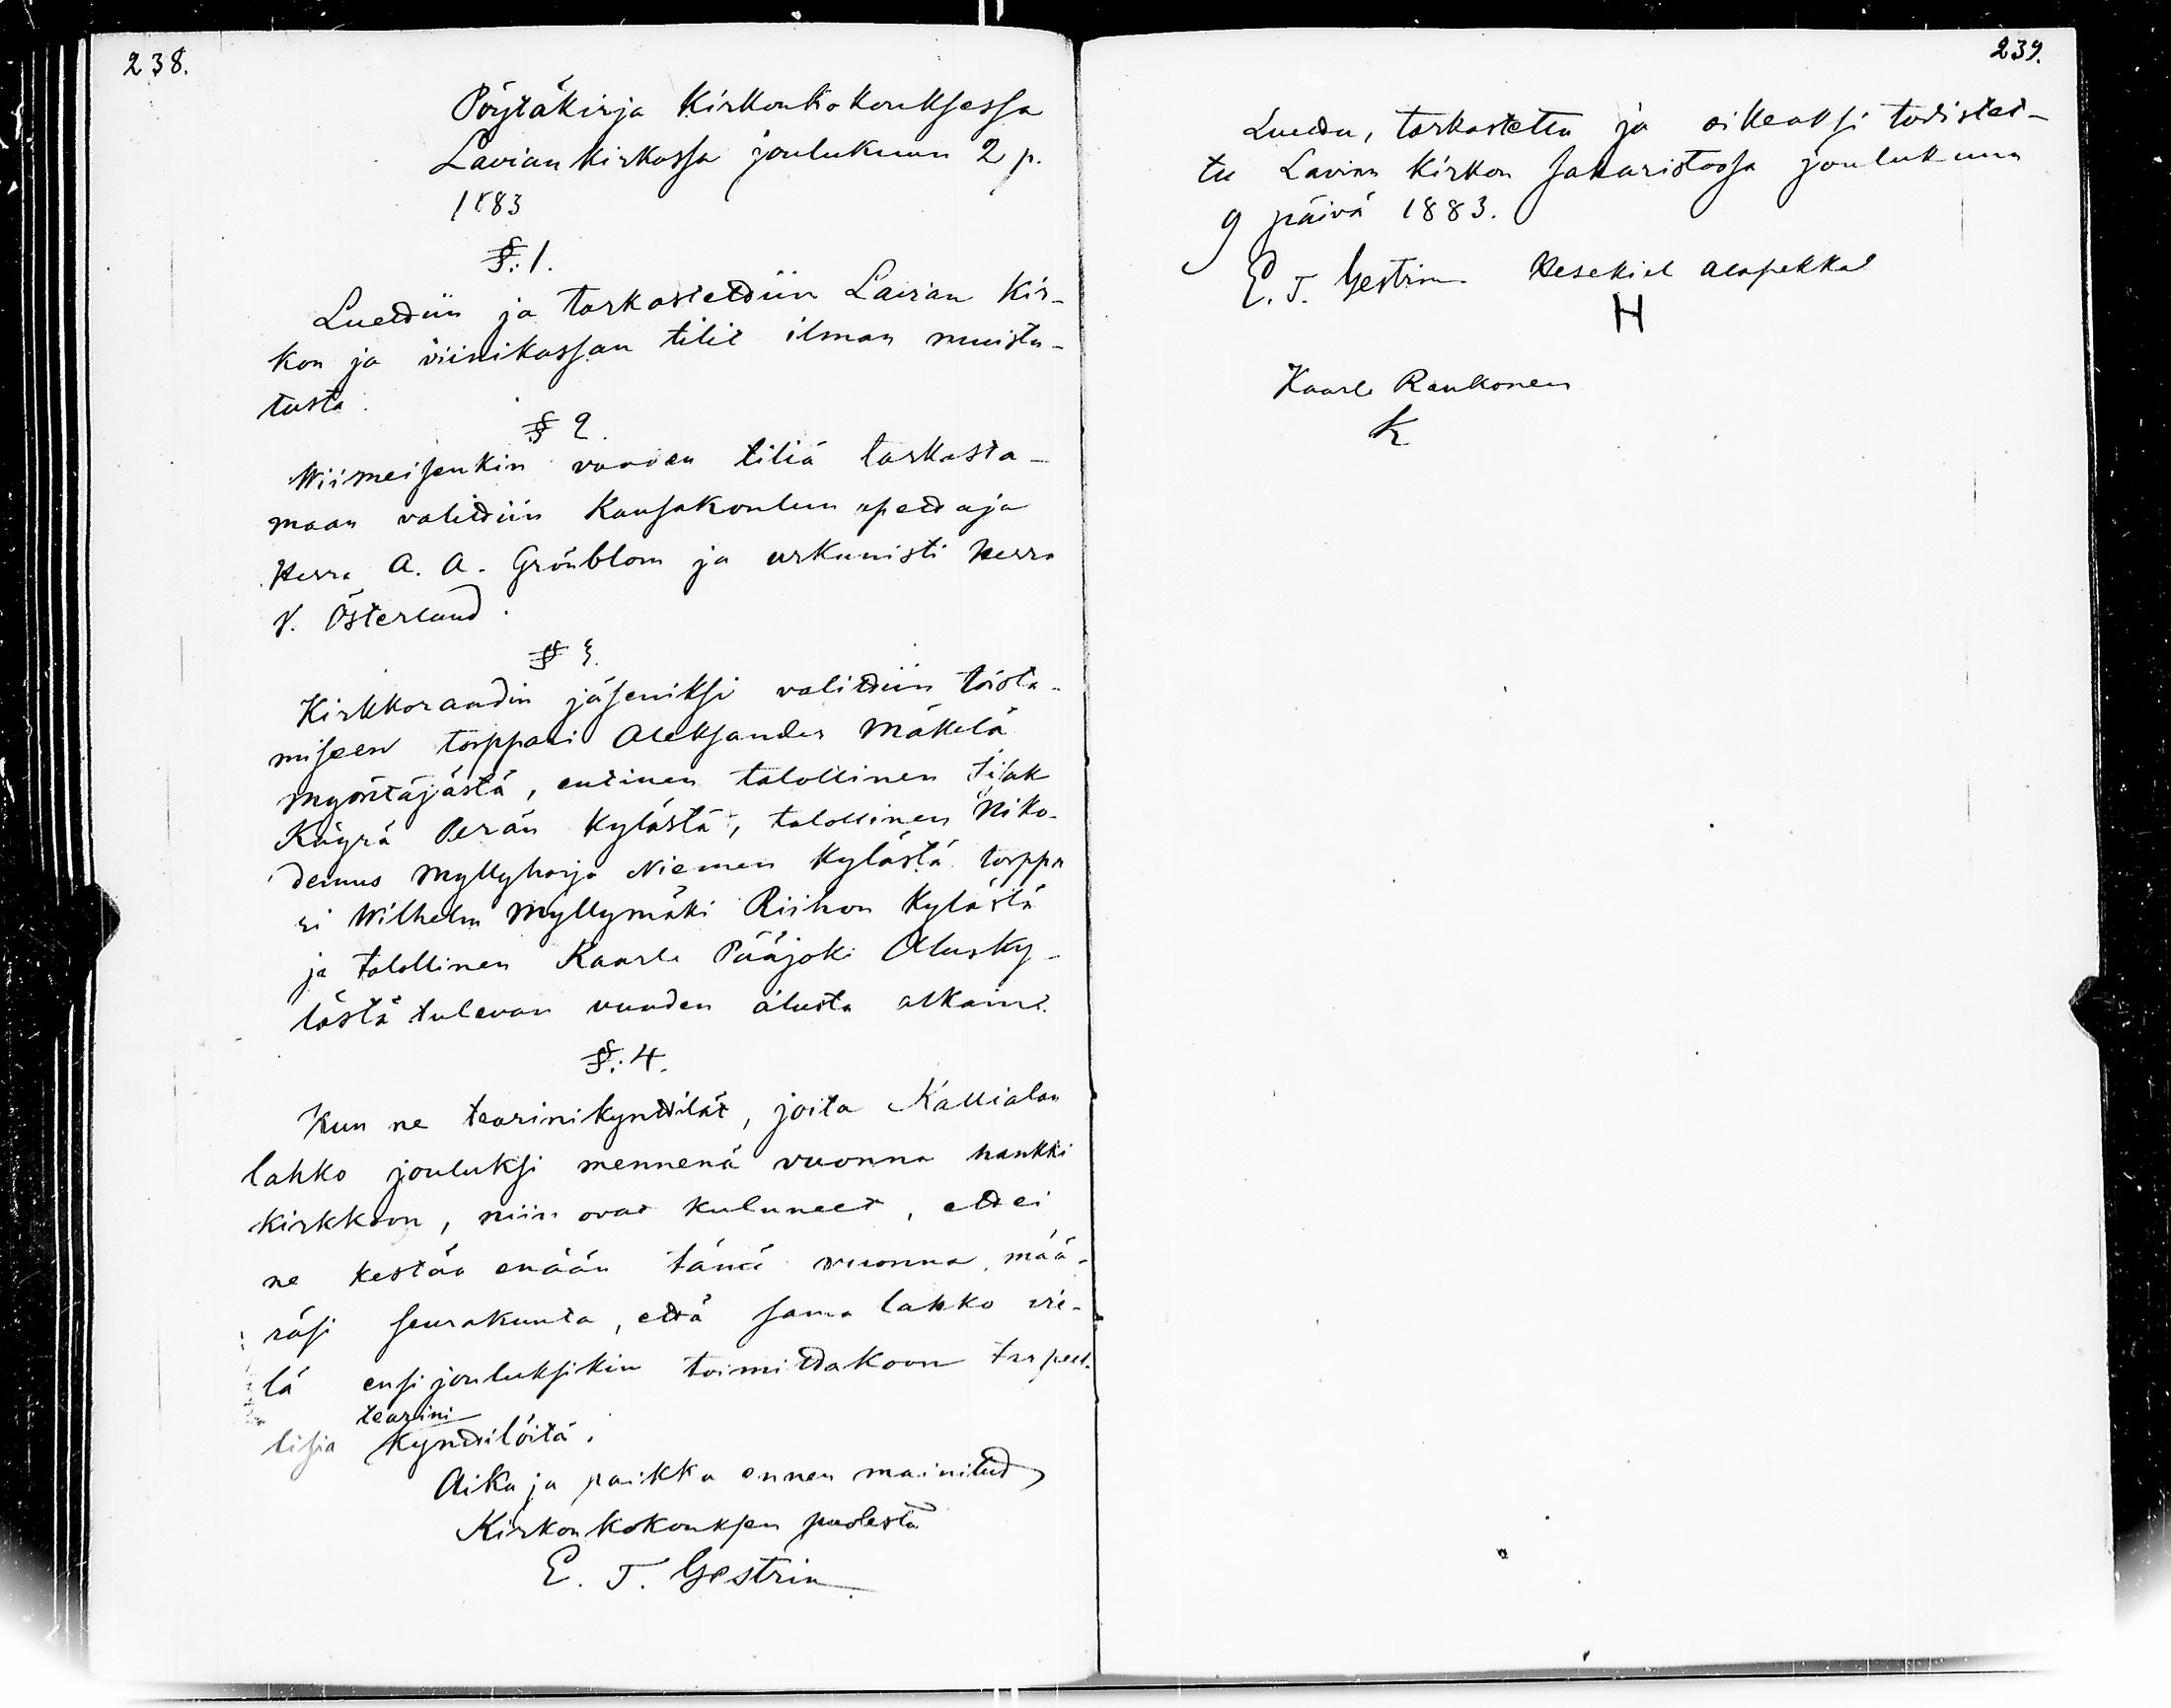 238.
Pöytäkirja Kirkonkokouksessa
Lavian kirkossa joulukuun 2 p.
1883
§: 1.
Luettiin ja tarkastettiin Lavian kir-
kon ja viinikassan tilit ilman muistu-
tusta.
§ 2.
Wiimeisenkin vuoden tiliä tarkasta-
maan valittiin Kansakoulun opettaja
Herra A. A. Grönblom ja urkunisti Herra
V. Österlund.
§ 3.
Kirkkoraadin jäseniksi valittiin toista-
miseen torppari Aleksander Mäkelä
Myöntäjästä, entinen talollinen Isak
Käyrä Perän Kylästä, talollinen Niko-
demus Myllyharja Niemen Kylästä torppa
ri Wilhelm Myllymäki Riihon Kylästä
ja talollinen Kaarle Pääjoki Alusky-
lästä tulevan vuoden alusta alkain.
§: 4.
Kun ne tearinikynttilät, joita Kallialan
lahko jouluksi mennenä vuonna hankki
Kirkkoon, niin ovat kuluneet, ettei
ne kestää enään tänä vuonna, mää-
räsi seurakunta, että sama lahko vie-
lä ensi jouluksikin toimittakoon tarpeel-
tearini
lisia kynttilöitä.
Aika ja paikka ennen mainitud
Kirkonkokouksen puolesta
E. J. Gestrin
239.
Luettu, tarkastettu ja oikeaksi todistet-
tu Lavian kirkon sakaristossa joulukuun
9 päivä 1883.
E. J. Gestrin Hesekiel Alapekkal
H
Kaarle Raukonen
K